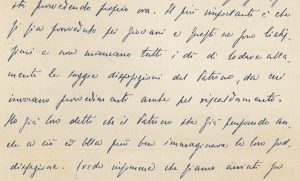 sta provvedendo proprio ora. Il più importante è che
si sia provveduto pei giovani e questi ne sono lieti
simi e non mancano tutti i dì di lodare alta
mente le sagge disposizioni del Patrono, da cui
invocano provvedimenti anche pel riscaldamento.
Ho già loro detto che il Patrono sta già pensando an
che a ciò ed Ella può ben immaginare la loro sod
disfazione. (vedo insomma che siamo avviati per